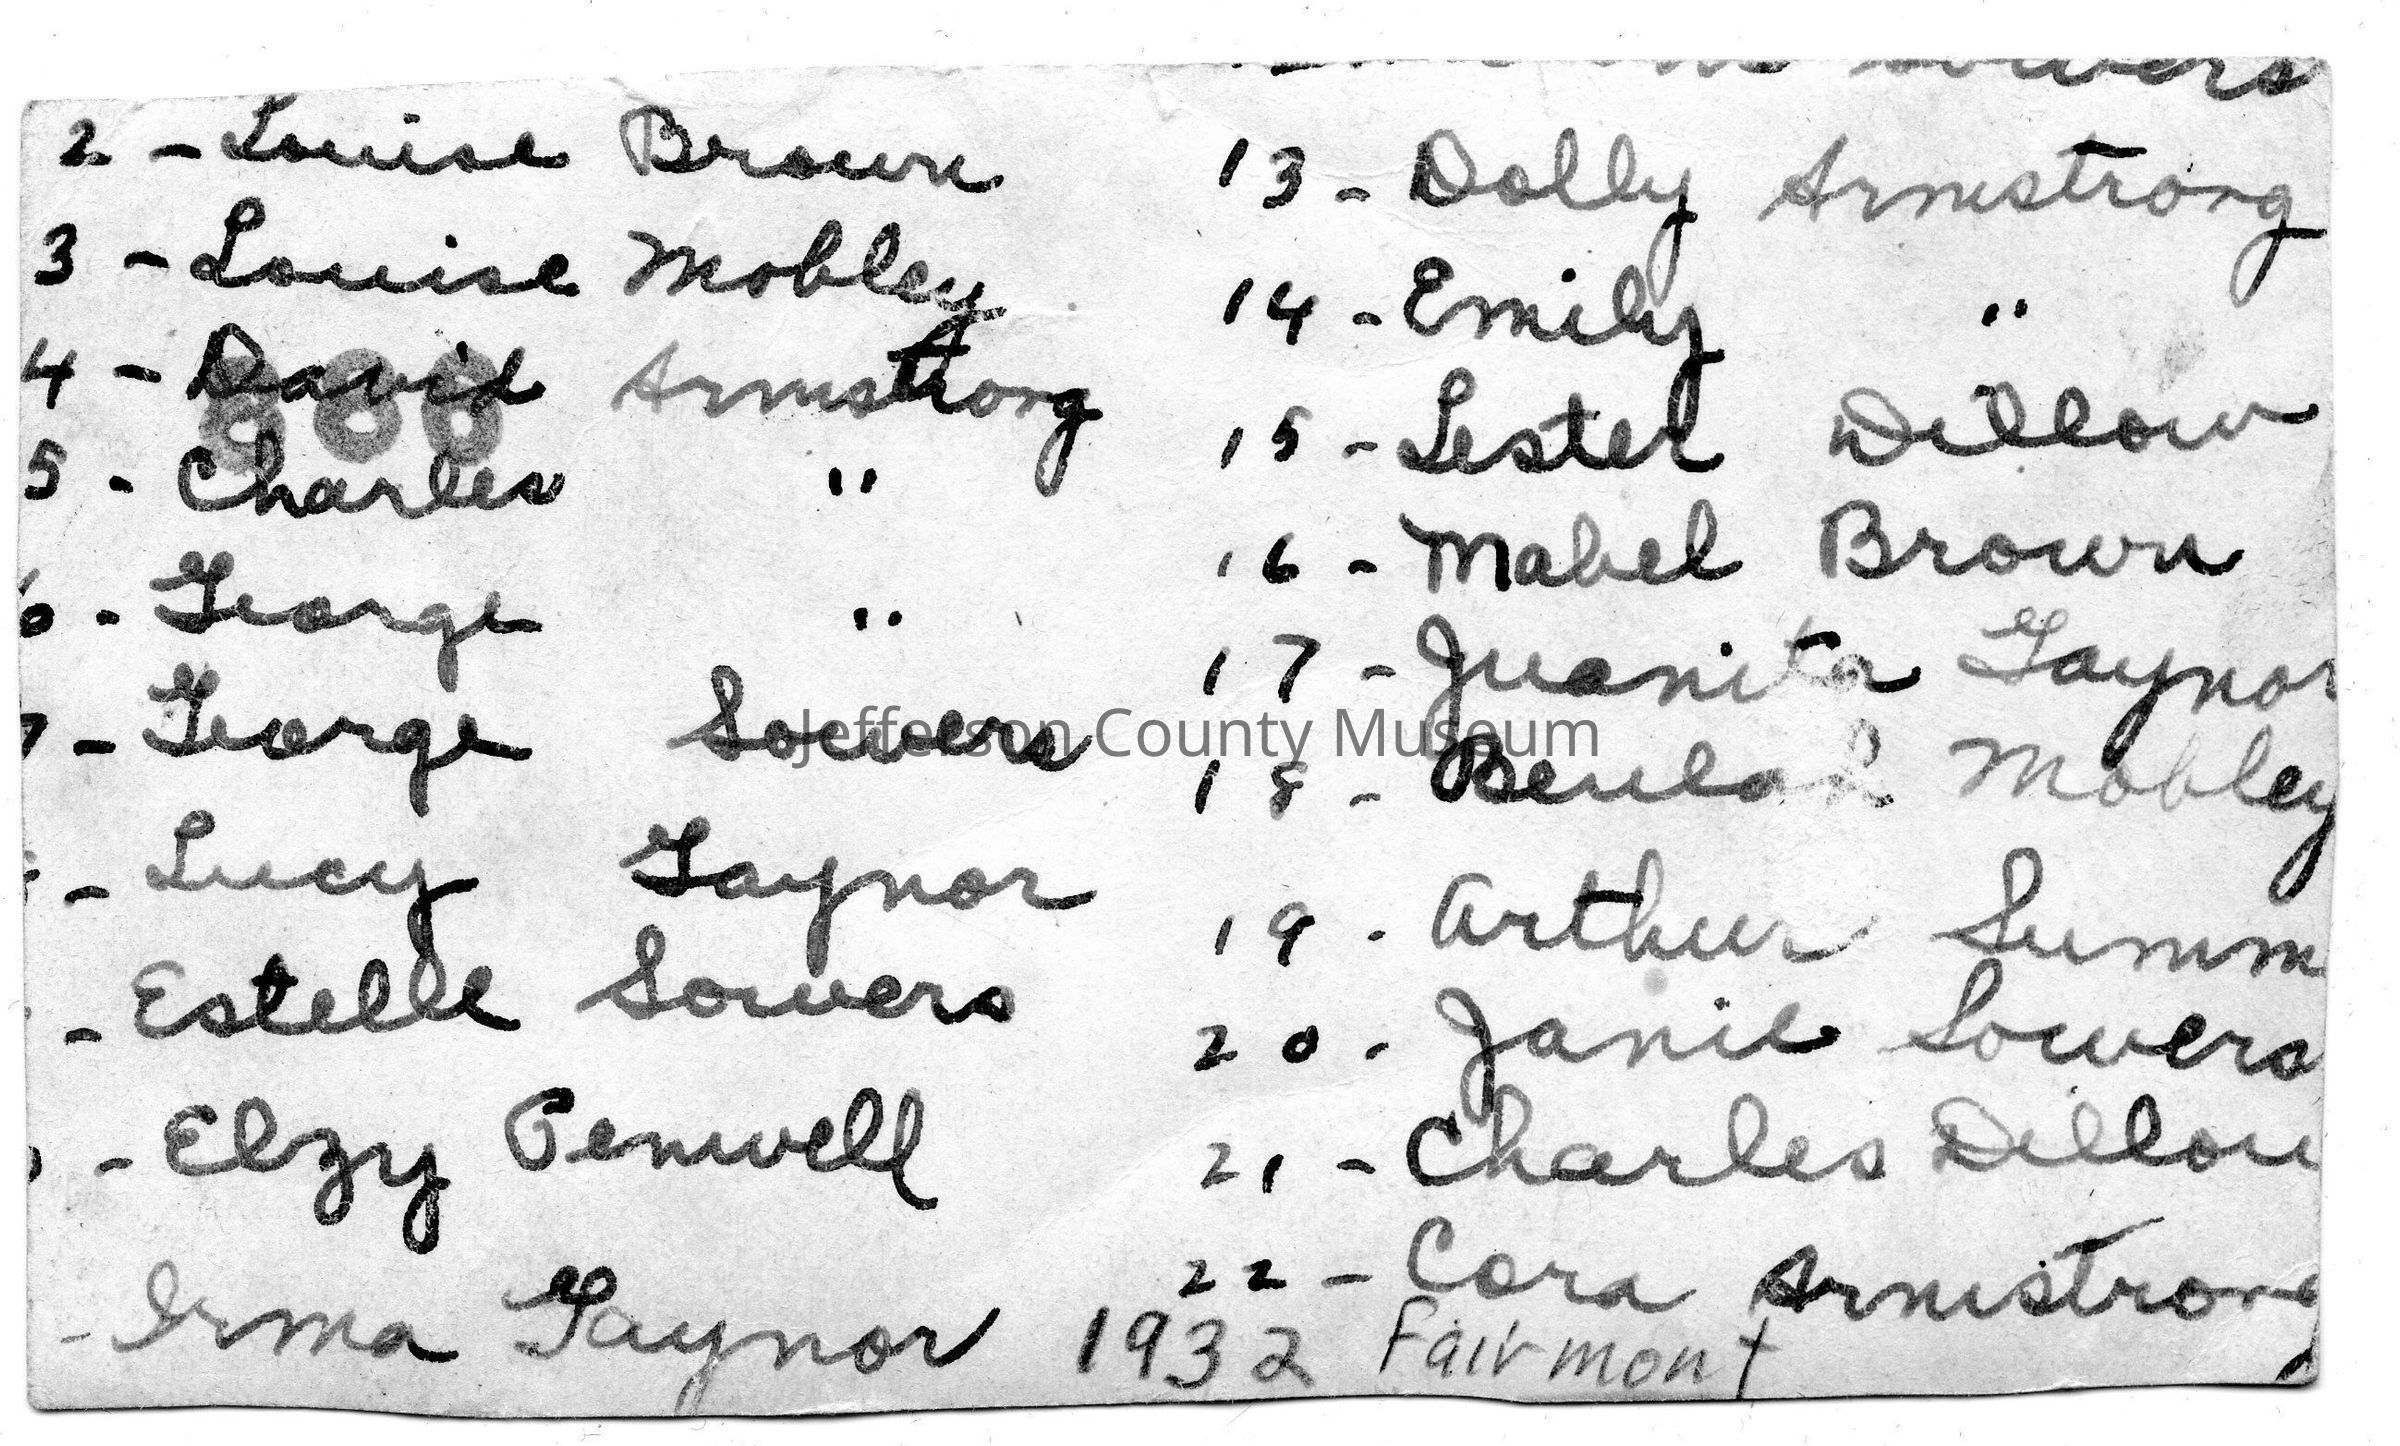 2 - Louise Brown
3 - Louise Mobley
4 - David Armstrong
5 - Charles "
6 - George "
7 - George Sowers
- Lucy Gaynor
- Estelle Sowers
- Elzy Penwell
- Irma Gaynor
Sowers
13 - Dolly Armstrong
14 - Emily "
15 - Lester Dillow
16 - Mabel Brown
17 - Juanita Gaynor
18 - Beulah Mobley
19 - Arthur Summ
20 - Janie Sowers
21 - Charles Dillow
22 - Cora Armstrong
1932 Fairmont
Jefferson County Museum